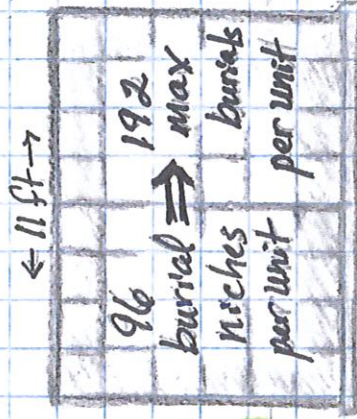 ← 11 ft →
96 burial niches per unit
⇒
192 max burials per unit